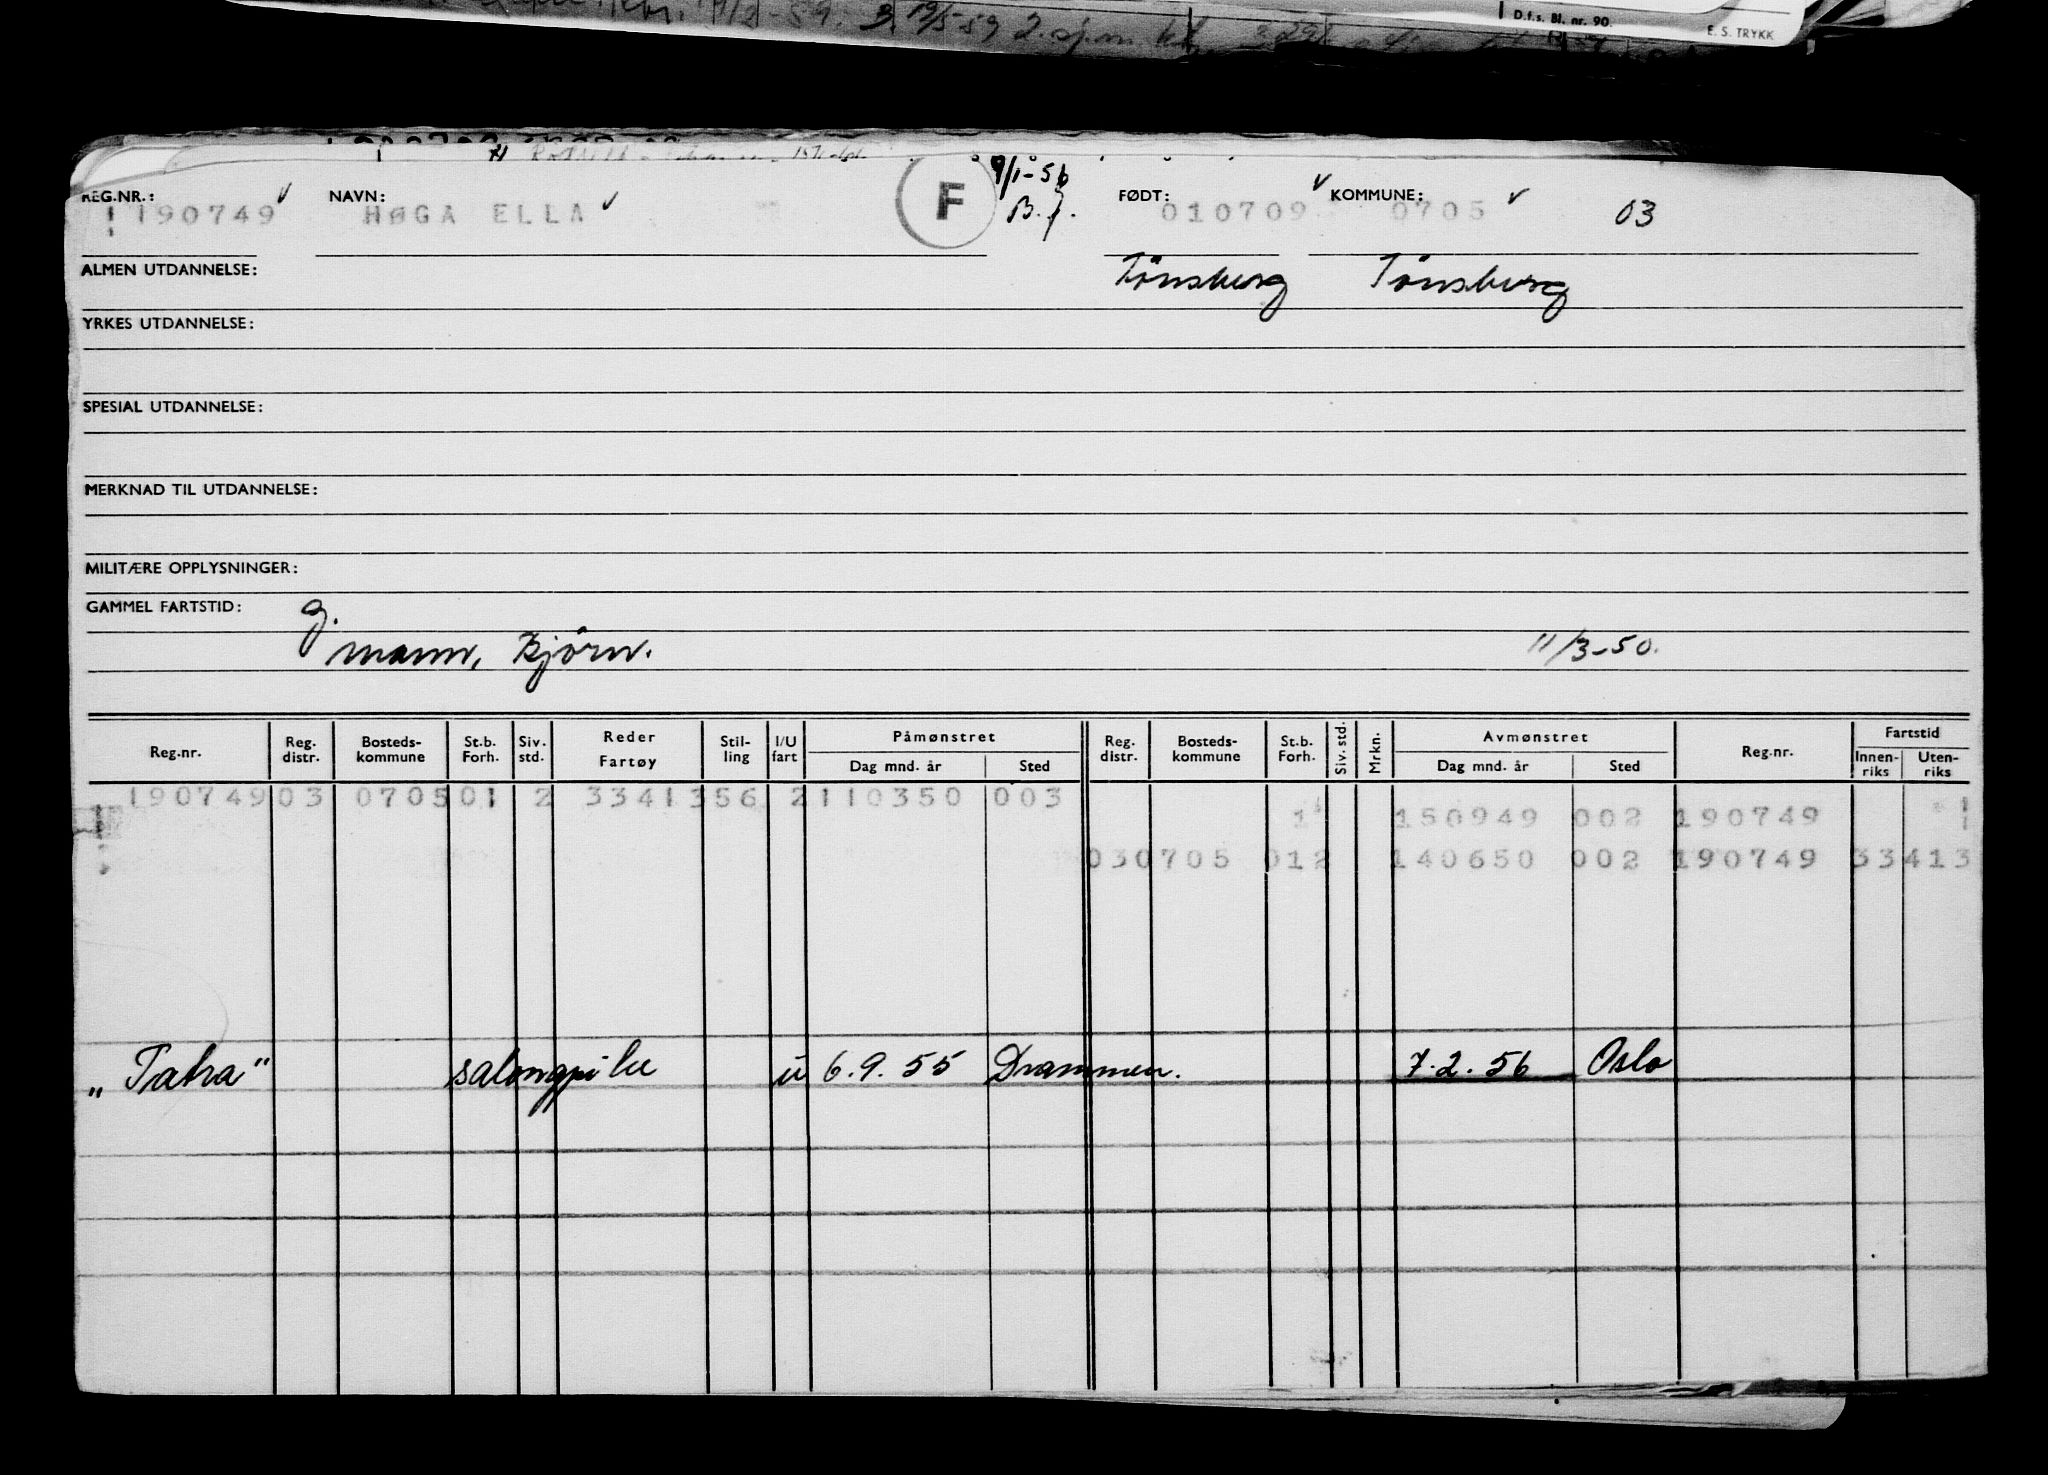 19/5-59 2.
D.f.s. Bl. nr. 90.
E. S. TRYKK
REG.NR.: 190749 NAVN: HØGA ELLA F 9/1-56 FØDT: 010709 KOMMUNE: 0705 03
B.f.
ALMEN UTDANNELSE: Tönsberg Tönsberg
YRKES UTDANNELSE:
SPESIAL UTDANNELSE:
MERKNAD TIL UTDANNELSE:
MILITÆRE OPPLYSNINGER:
GAMMEL FARTSTID: g.
mann, Björn. 11/3-50.
Reg.nr. Reg. distr. Bosteds-kommune St.b. Forh. Siv. std. Reder Fartøy Stil-ling I/U fart Påmønstret Dag mnd. år Sted Reg. distr. Bosteds-kommune St.b. Forh. Siv. std. Mrkn. Avmønstret Dag mnd. år Sted Reg.nr. Fartstid Innen-riks Uten-riks
190749 03 0705 01 2 33413 56 2 110350 003
1 150949 002 190749
03 0705 012 140650 002 190749 33413
„Tatra" salongpike u 6.9.55 Drammen. 7.2.56 Oslo